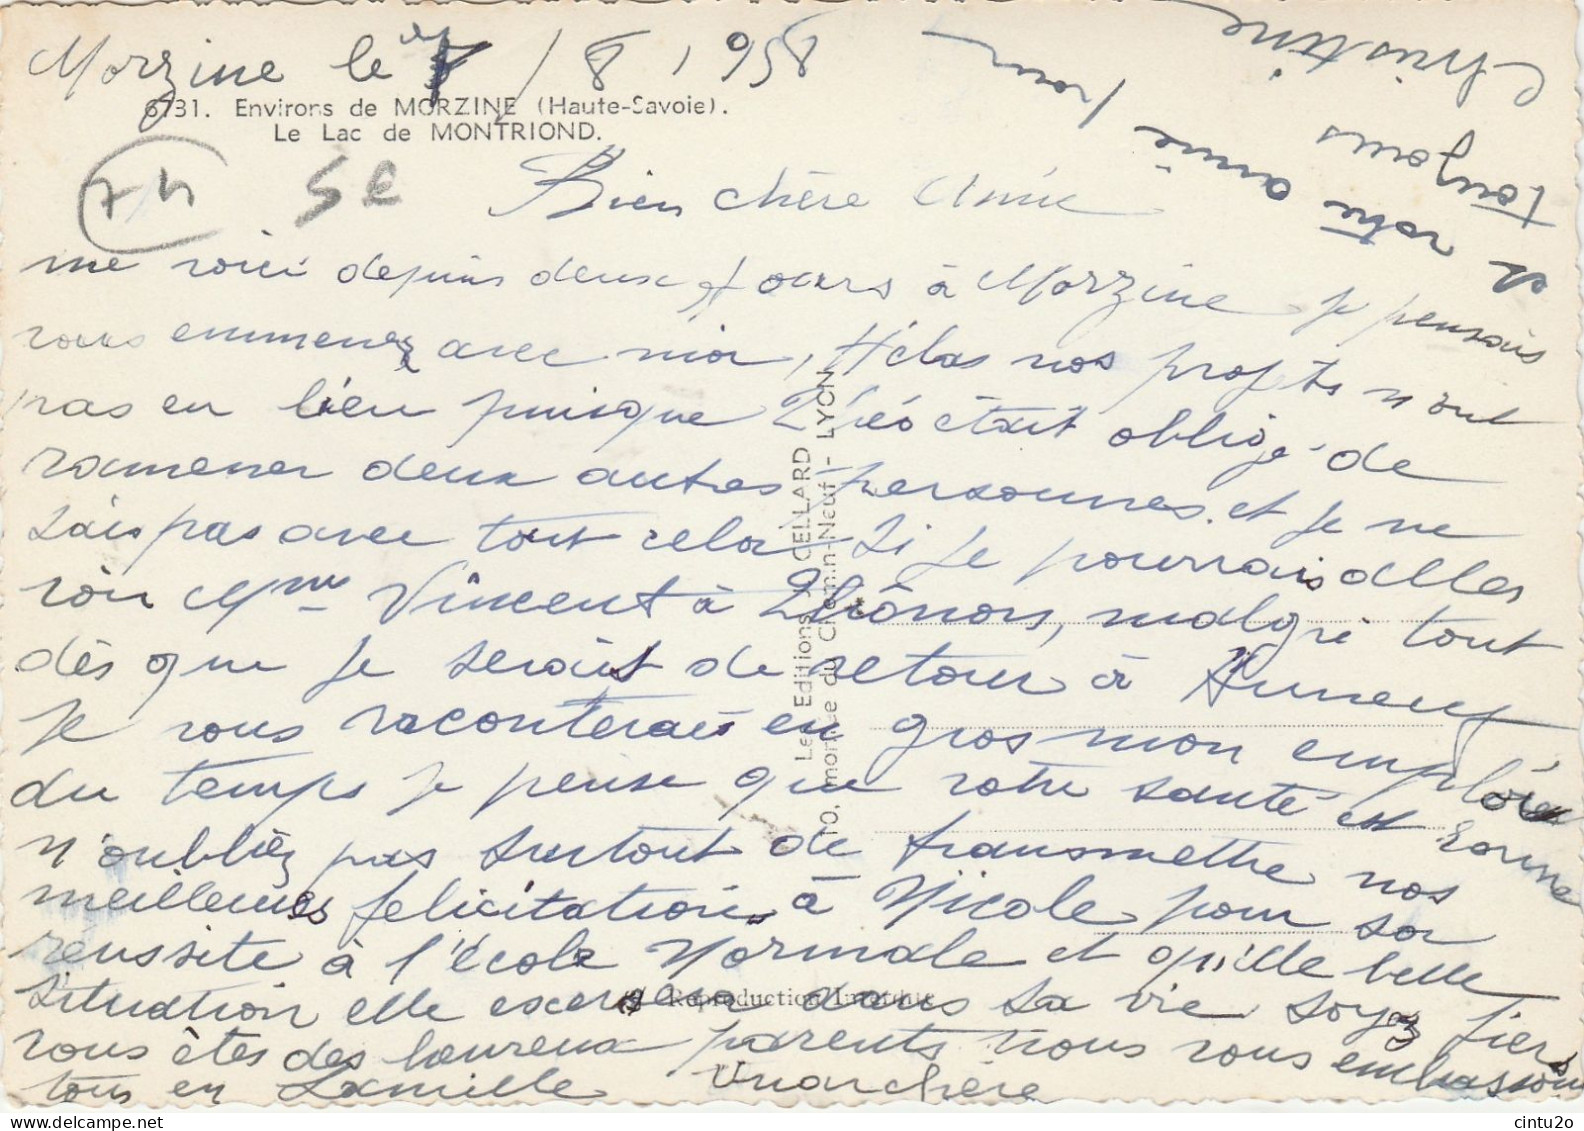 Morzine le 7/8/1958
6731. Environs de MORZINE (Haute-Savoie).
Le Lac de MONTRIOND.
74 5e
Bien chère Amie
me voici depuis deux jours à Morzine je pensais
vous emmenez avec moi, Hélas nos projets n'ont
pas eu lieu puisque Théo était obligé de
ramener deux autres personnes. et je ne
sais pas avec tout cela Si je pourrais aller
voir Mme Vincent à Thônon, malgré tout
dès que je serait de retour à
je vous raconterais en gros mon emploie
du temps je pense que votre santé est bonne
n'oubliéz pas surtout de transmettre nos
meilleures félicitations à Nicole pour sa
reussite à l'école Normale et qu'elle belle
situation elle exercera dans sa vie soyez fiers
vous êtes des heureux parents nous vous embrassons
tous en Famille
Christine
toujours
votre amie pour
Les Editions J. CELLARD
10, montée du Chemin-Neuf - LYON
Reproduction Interdite
cintu2o